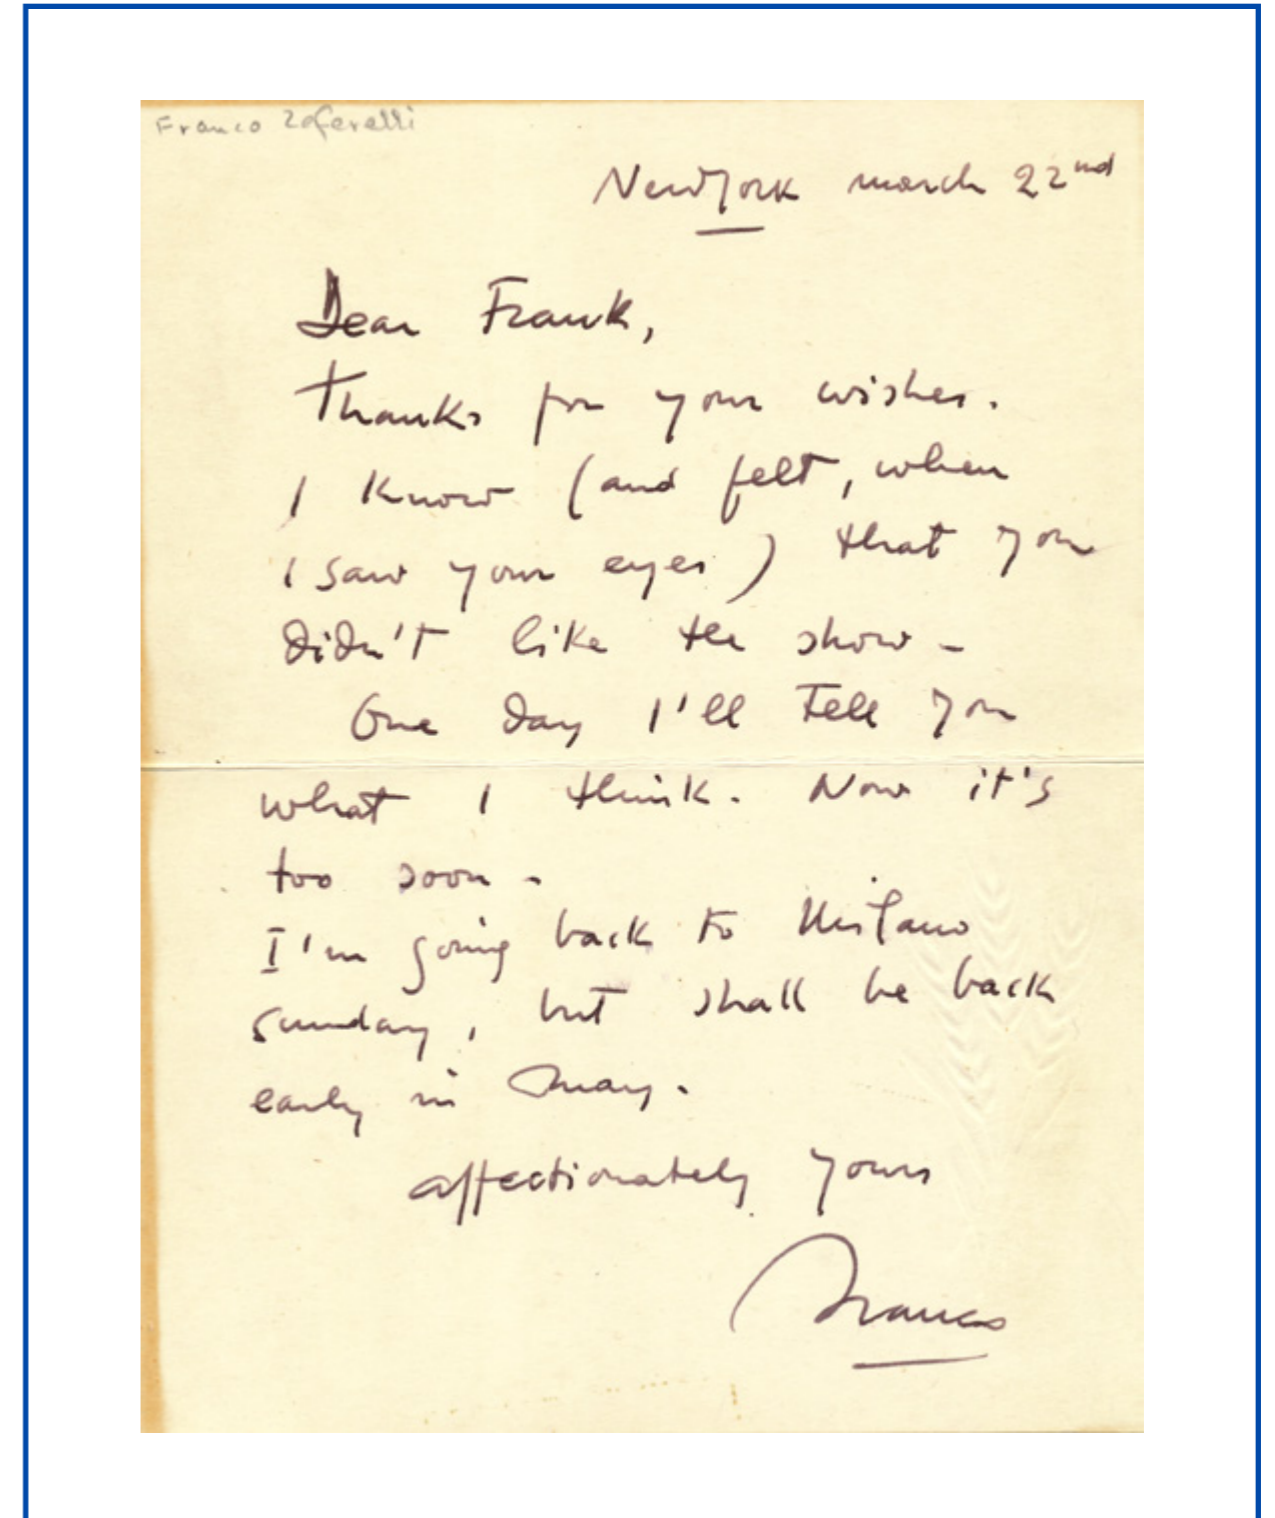 Franco Zaferelli
New York march 22nd
Dear Frank,
Thanks for your wishes.
I know (and felt, when
I saw your eyes) that you
didn't like the show -
One day I'll tell you
what I think. Now it's
too soon -
I'm going back to Milano
sunday, but shall be back
early in may.
affectionately yours
Franco